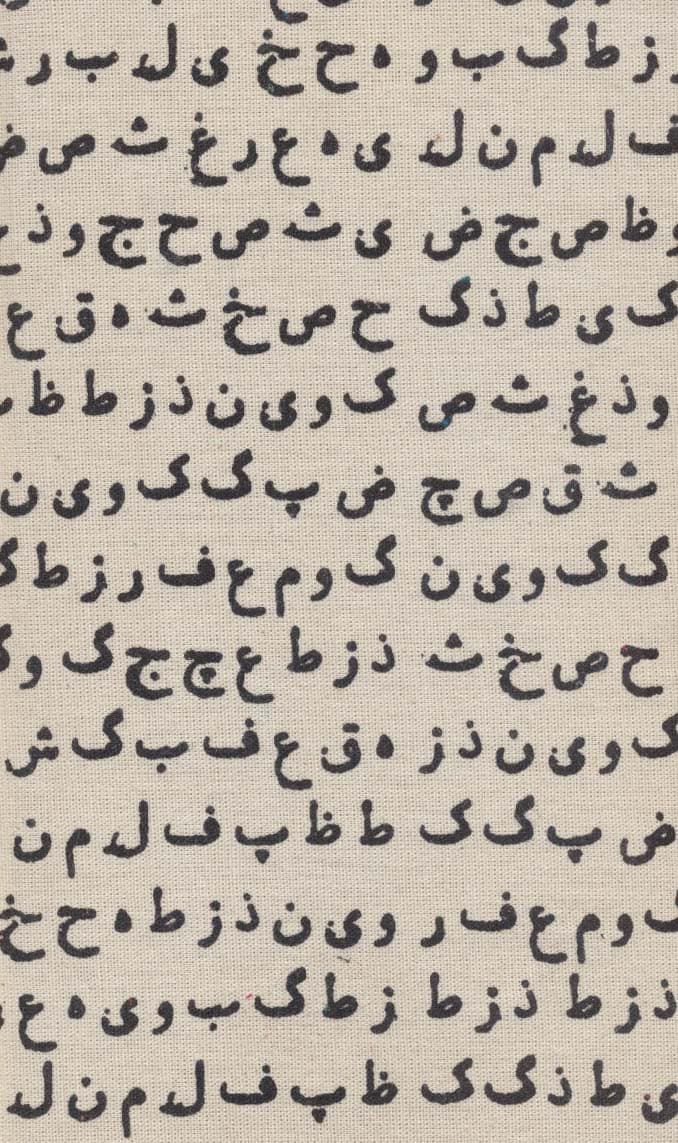 ز ط گ ب و ه ح خ ی لد ب ر
ف لد م ن لد ی ه ع ر غ ث ص ض
ظ ص ج ض ی ث ص ح ج و ذ
ک ی ط ذ گ ح ص خ ث ه ق ع
و ذ غ ث ص ک و ی ن ذ ز ط ظ
ث ق ص چ ض پ گ ک و ی ن
گ ک و ی ن گ و م ع ف ر ز ط گ
ح ص خ ث ذ ز ط ع چ ج گ و
ک و ی ن ذ ز ه ق ع ف ب گ ش
ض پ گ ک ط ظ پ ف لد م ن
و م ع ف ر و ی ن ذ ز ط ه ح خ
ذ ز ط ذ ز ط ز ط گ ب و ی ه ع
ی ط ذ گ ک ظ پ ف لد م ن لد